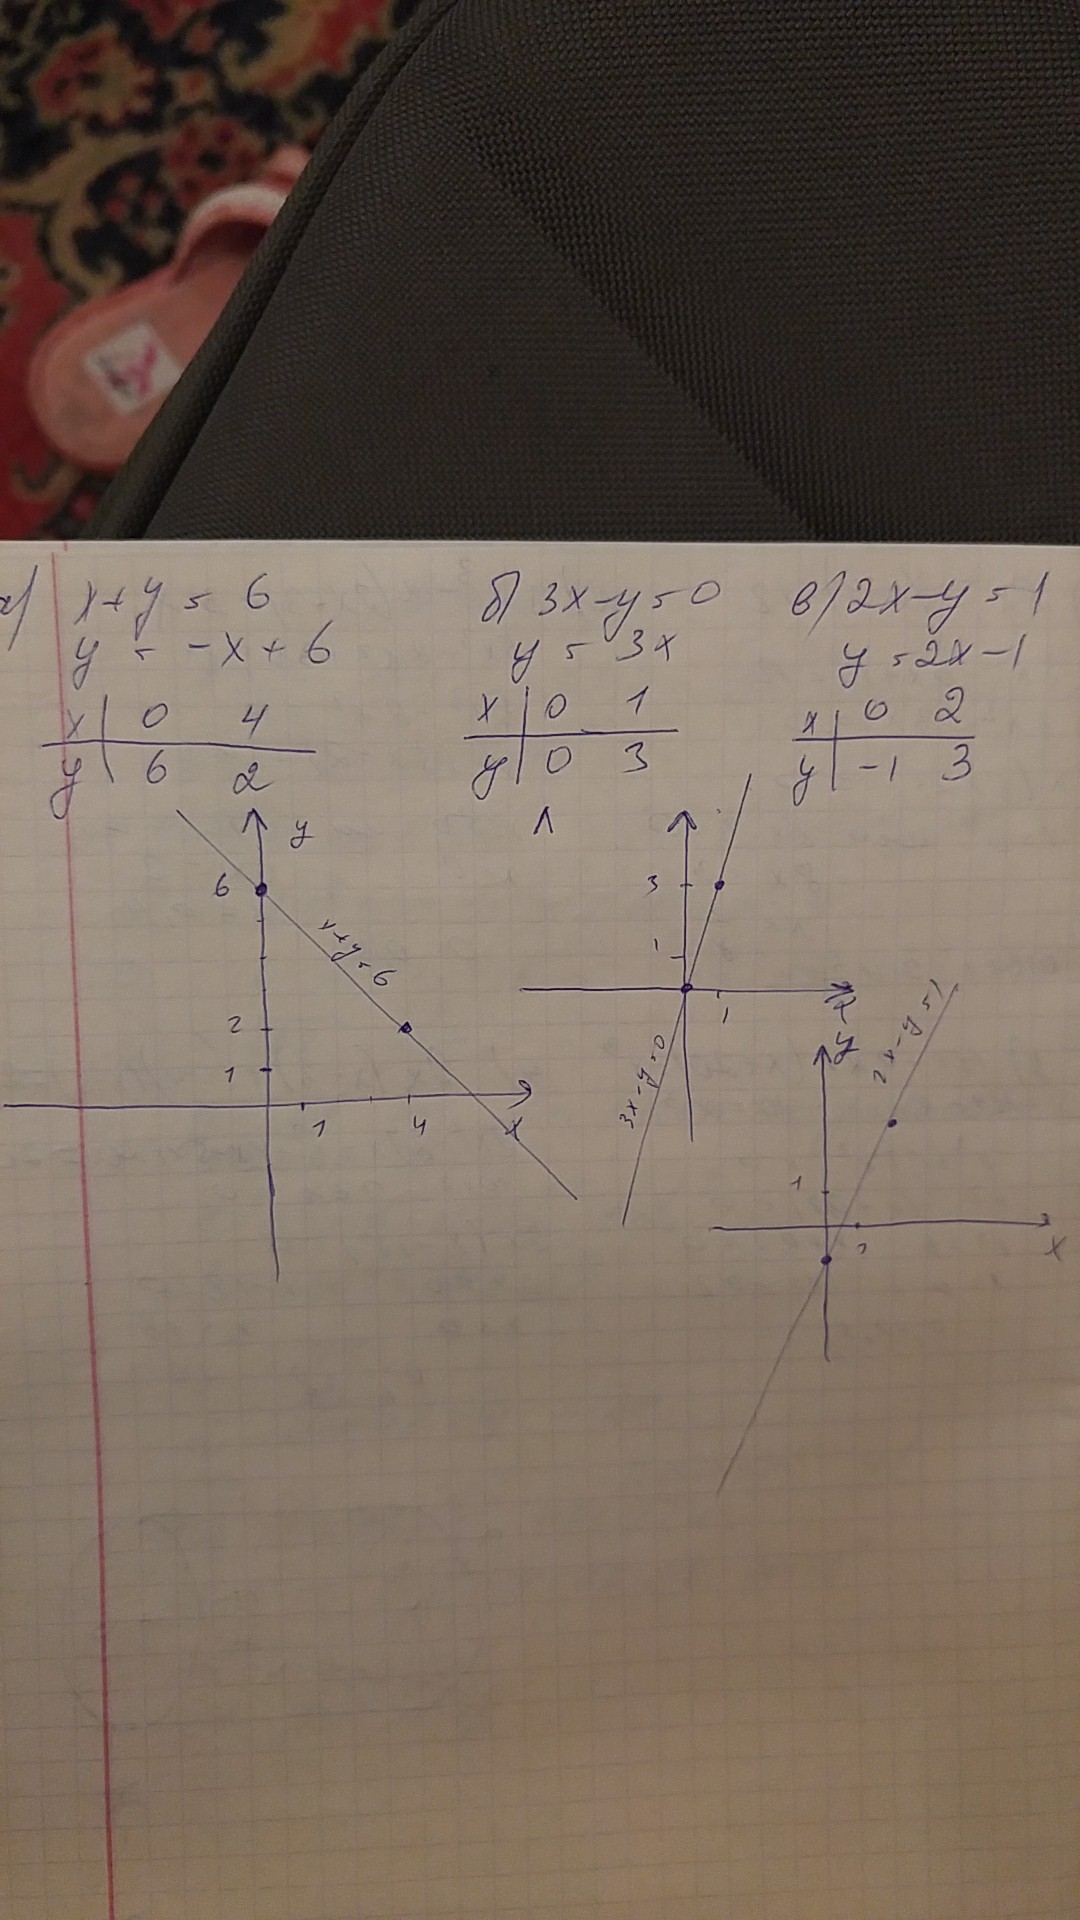 а) x+y=6
y = -x+6
x | 0 4
y | 6 2
y
6
x+y=6
2
1
1 4 x
б) 3x-y=0
y = 3x
x | 0 1
y | 0 3
3
1
1
3x-y=0
в) 2x-y=1
y=2x-1
x | 0 2
y | -1 3
y
2x-y=1
1
x